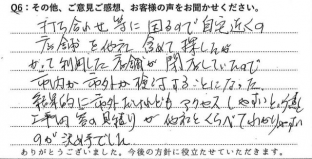 Q6：その他、ご意見ご感想、お客様の声をお聞かせください。
打ち合わせ等に困るので自宅近くの
店舗を他社含めて探したが
かつて利用した店舗が閉店していたので
市内か市外か検討することになった
結果的に市外だったけどもアクセスしやすいと感じ
工事内容の見積りが他社とくらべてわかりやすい
のが決め手でした
ありがとうございました。今後の方針に役立たせていただきます。